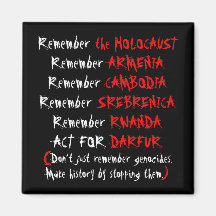 Remember the HOLOCAUST
Remember ARMENIA
Remember CAMBODIA
Remember SREBRENICA
Remember RWANDA
ACT FOR DARFUR
(Don't just remember genocides.
Make history by stopping them.)